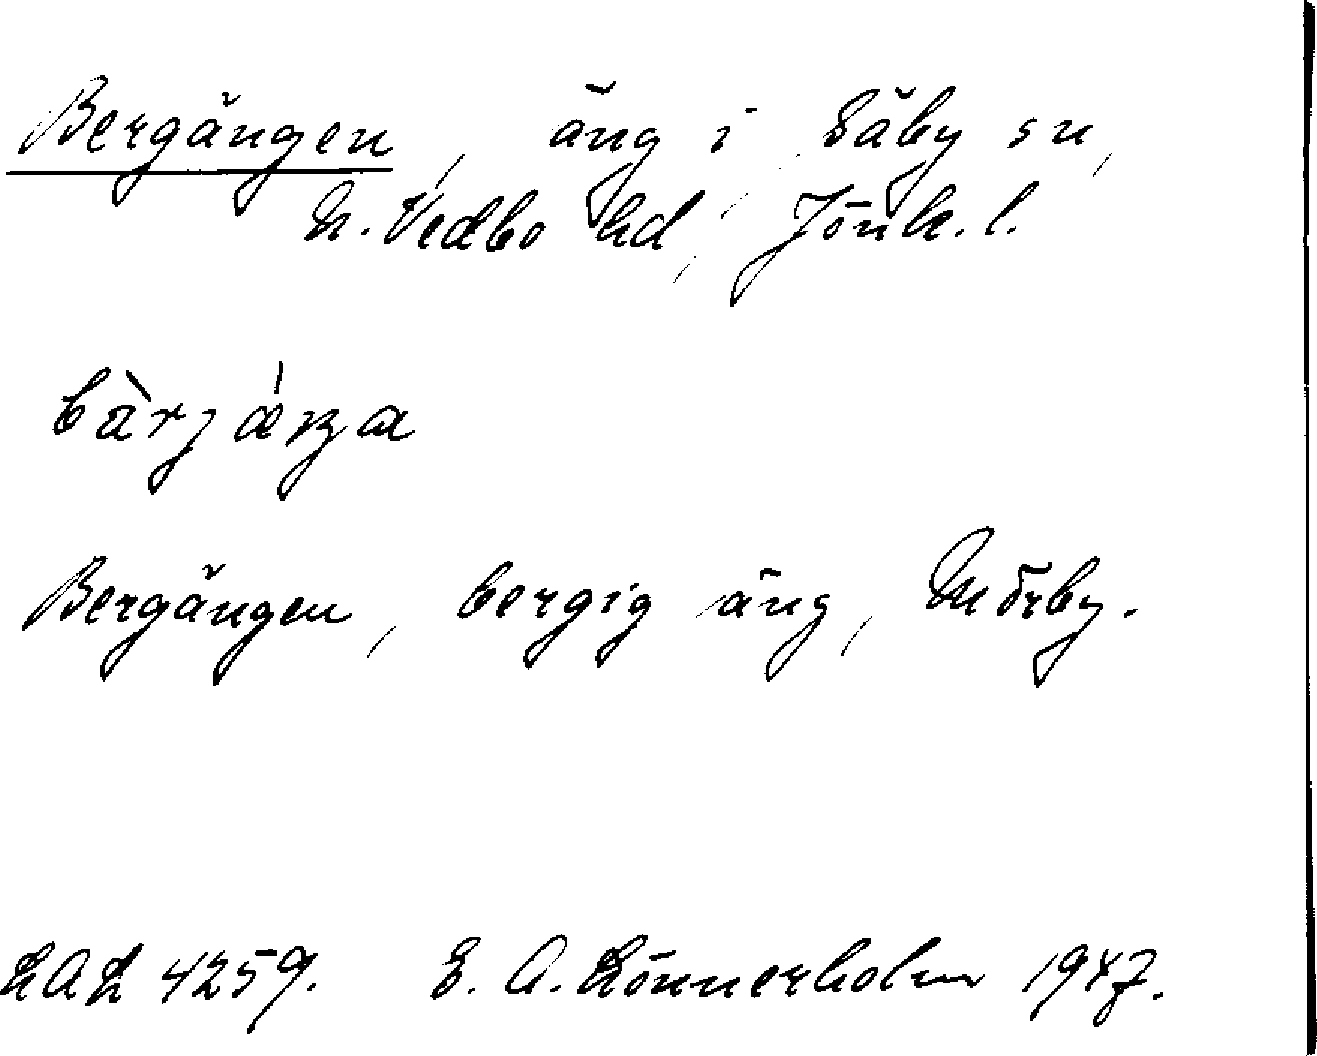 Bergängen, äng i Säby sn,
N. Vedbo hd, Jönk. l.
bàrjáŋa
Bergängen, bergig äng, Mörby.
LAL 4259. E. A. Lönnerholm 1947.